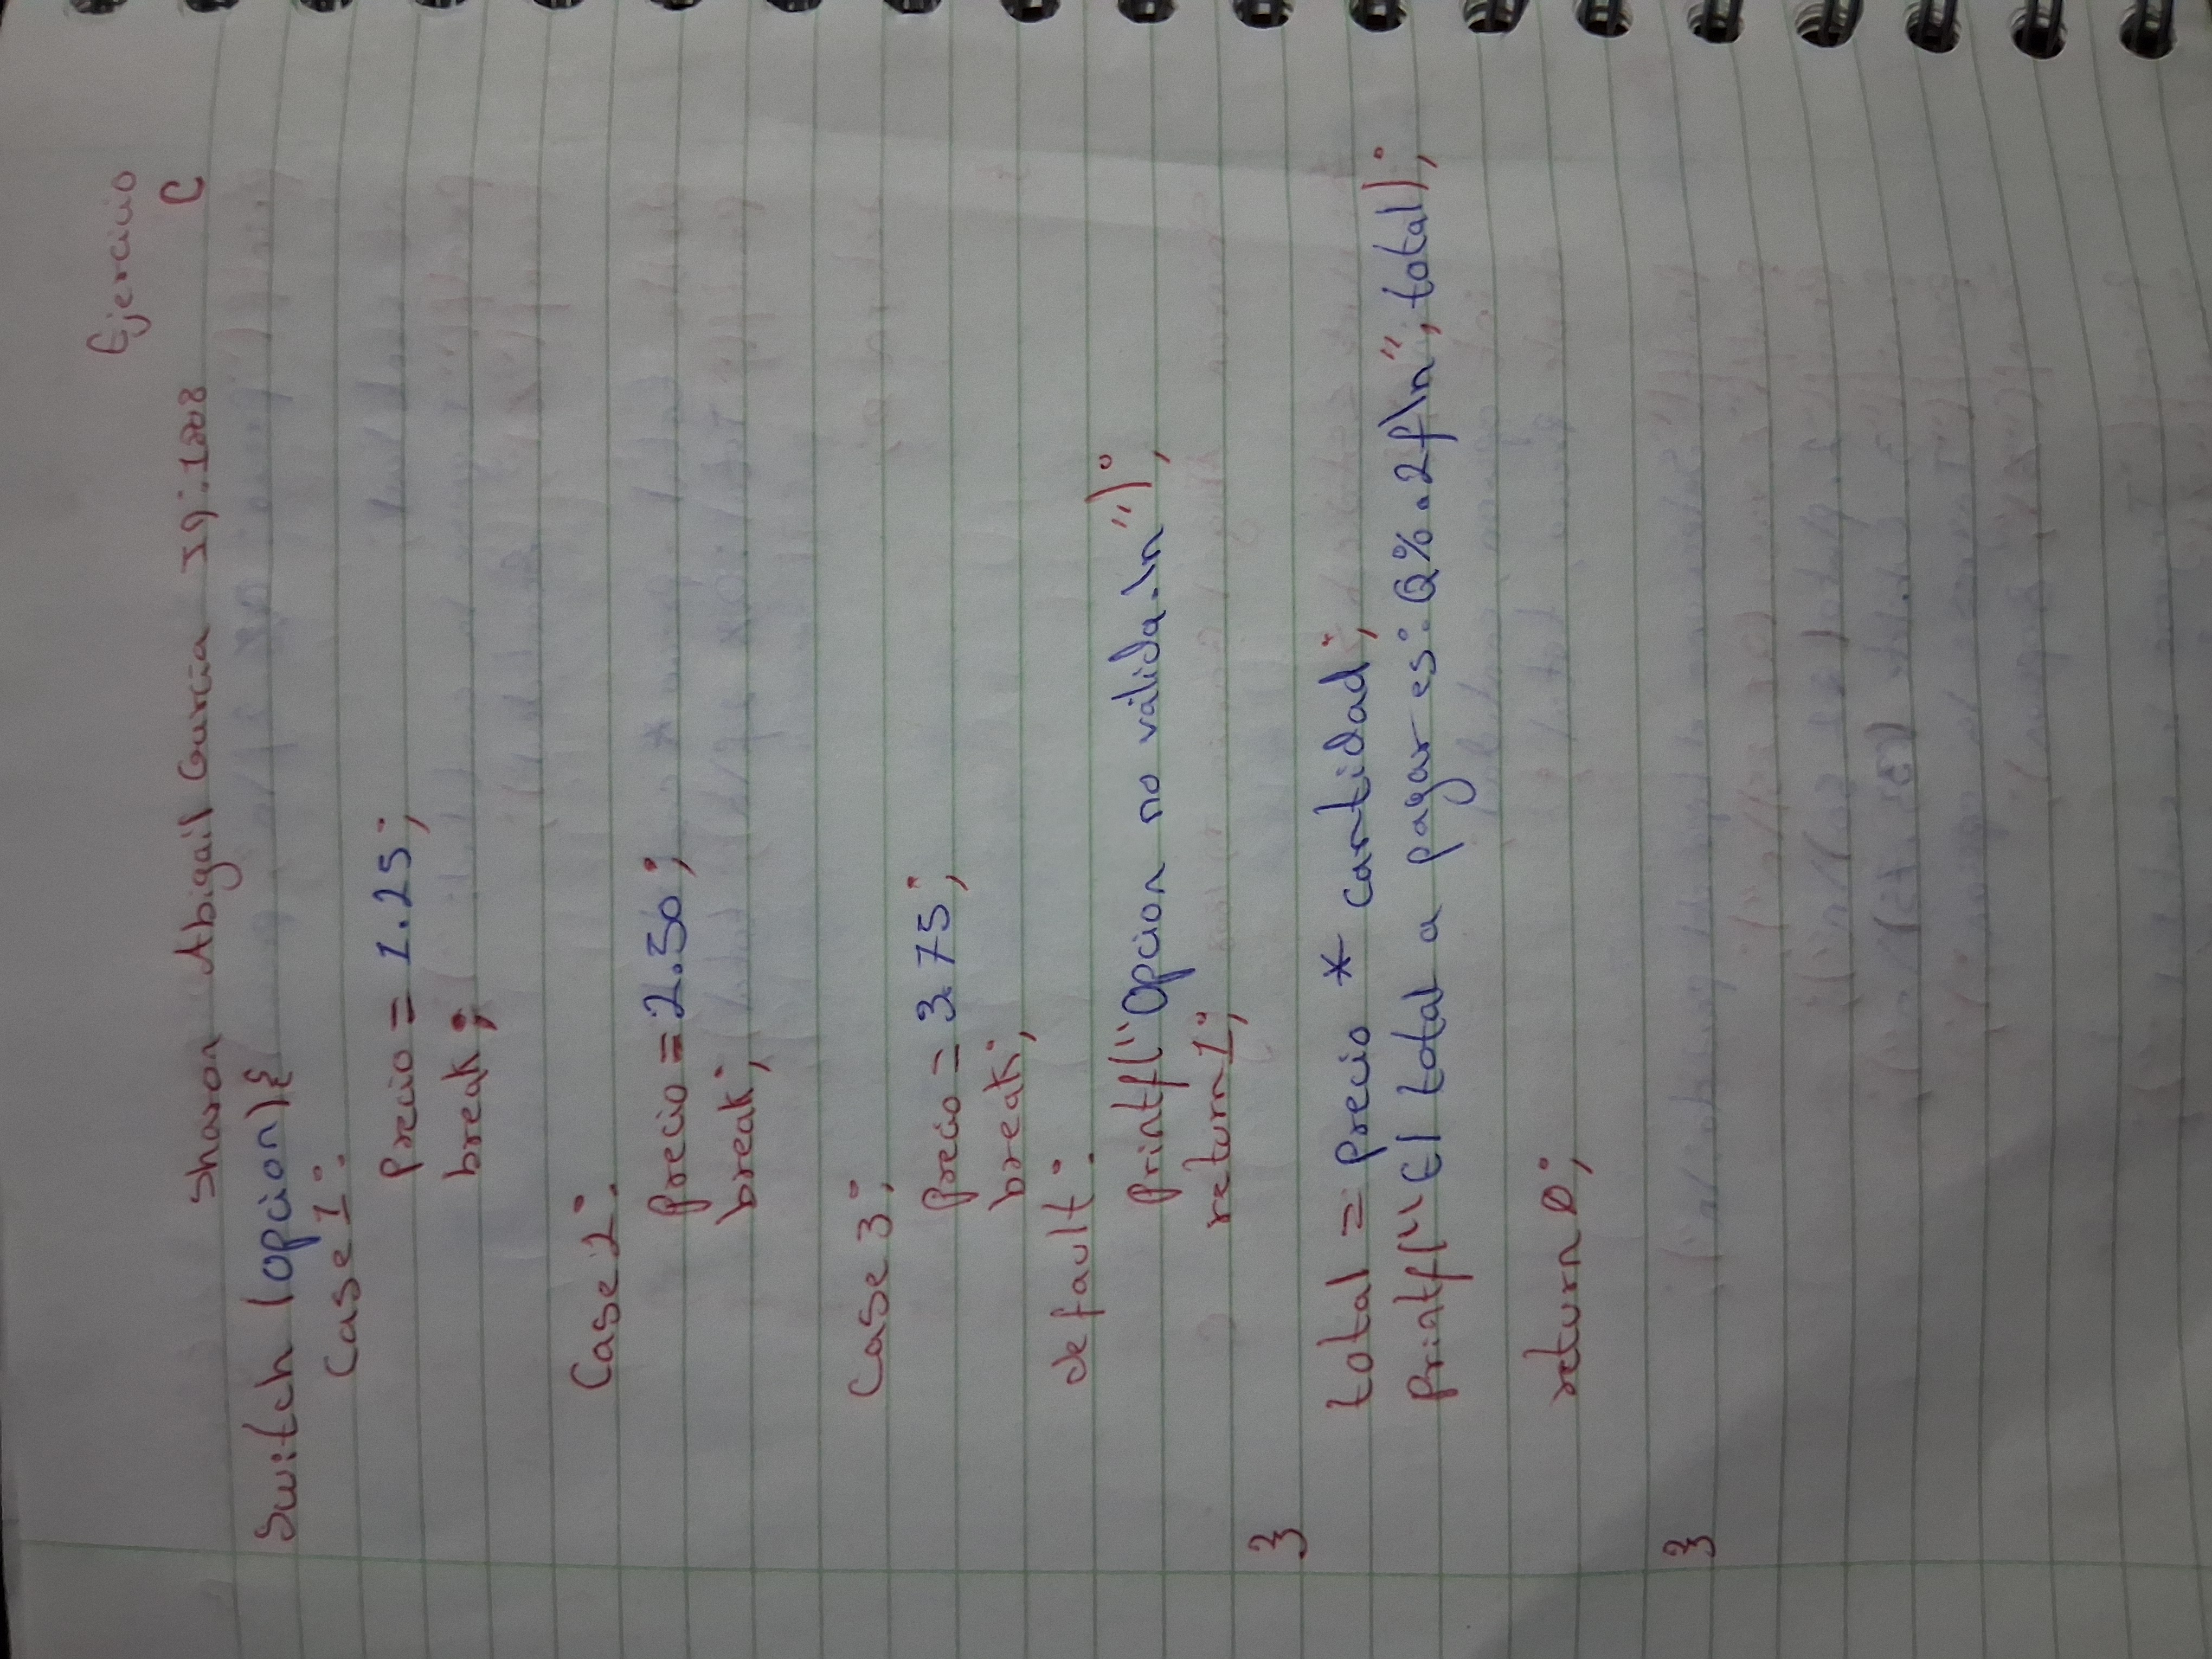 Ejercicio
Sharon Abigail Garcia C
Switch (opcion){
Case 1:
Precio = 1.25;
break;
Case 2:
Precio = 2.50;
break;
Case 3;
Precio = 3.75;
break;
default:
Printf("Opcion no valida.\n");
return 1;
}
total = Precio * cantidad;
Printf("El total a pagar es: Q%.2f\n", total);
return 0;
}